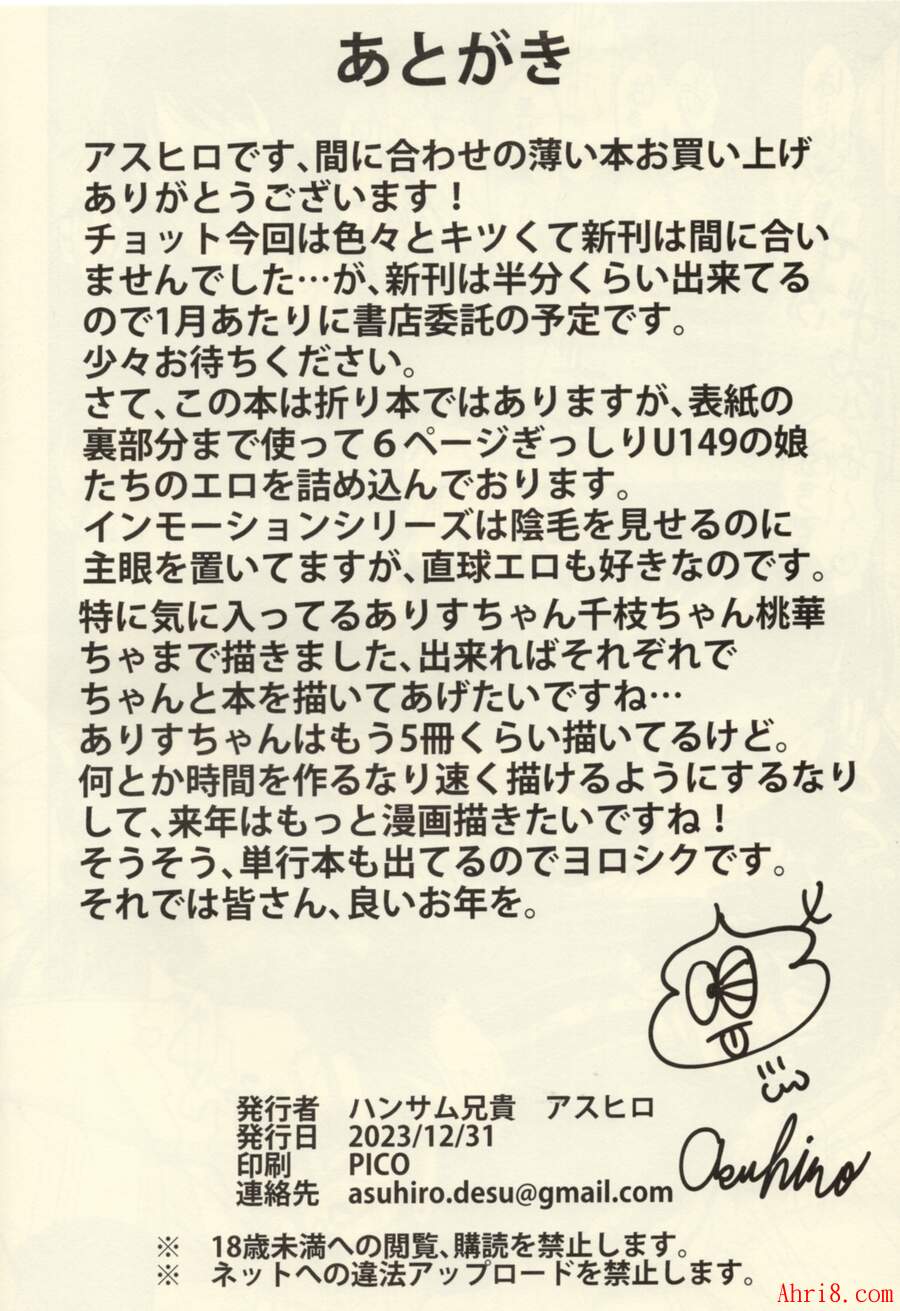 あとがき
アスヒロです、間に合わせの薄い本お買い上げ
ありがとうございます！
チョット今回は色々とキツくて新刊は間に合い
ませんでした…が、新刊は半分くらい出来てる
ので1月あたりに書店委託の予定です。
少々お待ちください。
さて、この本は折り本ではありますが、表紙の
裏部分まで使って６ページぎっしりU149の娘
たちのエロを詰め込んでおります。
インモーションシリーズは陰毛を見せるのに
主眼を置いてますが、直球エロも好きなのです。
特に気に入ってるありすちゃん千枝ちゃん桃華
ちゃまで描きました、出来ればそれぞれで
ちゃんと本を描いてあげたいですね…
ありすちゃんはもう5冊くらい描いてるけど。
何とか時間を作るなり速く描けるようにするなり
して、来年はもっと漫画描きたいですね！
そうそう、単行本も出てるのでヨロシクです。
それでは皆さん、良いお年を。
発行者　ハンサム兄貴　アスヒロ
発行日　2023/12/31
印刷　PICO
連絡先　asuhiro.desu@gmail.com
Asuhiro
※　18歳未満への閲覧、購読を禁止します。
※　ネットへの違法アップロードを禁止します。
Ahri8.com